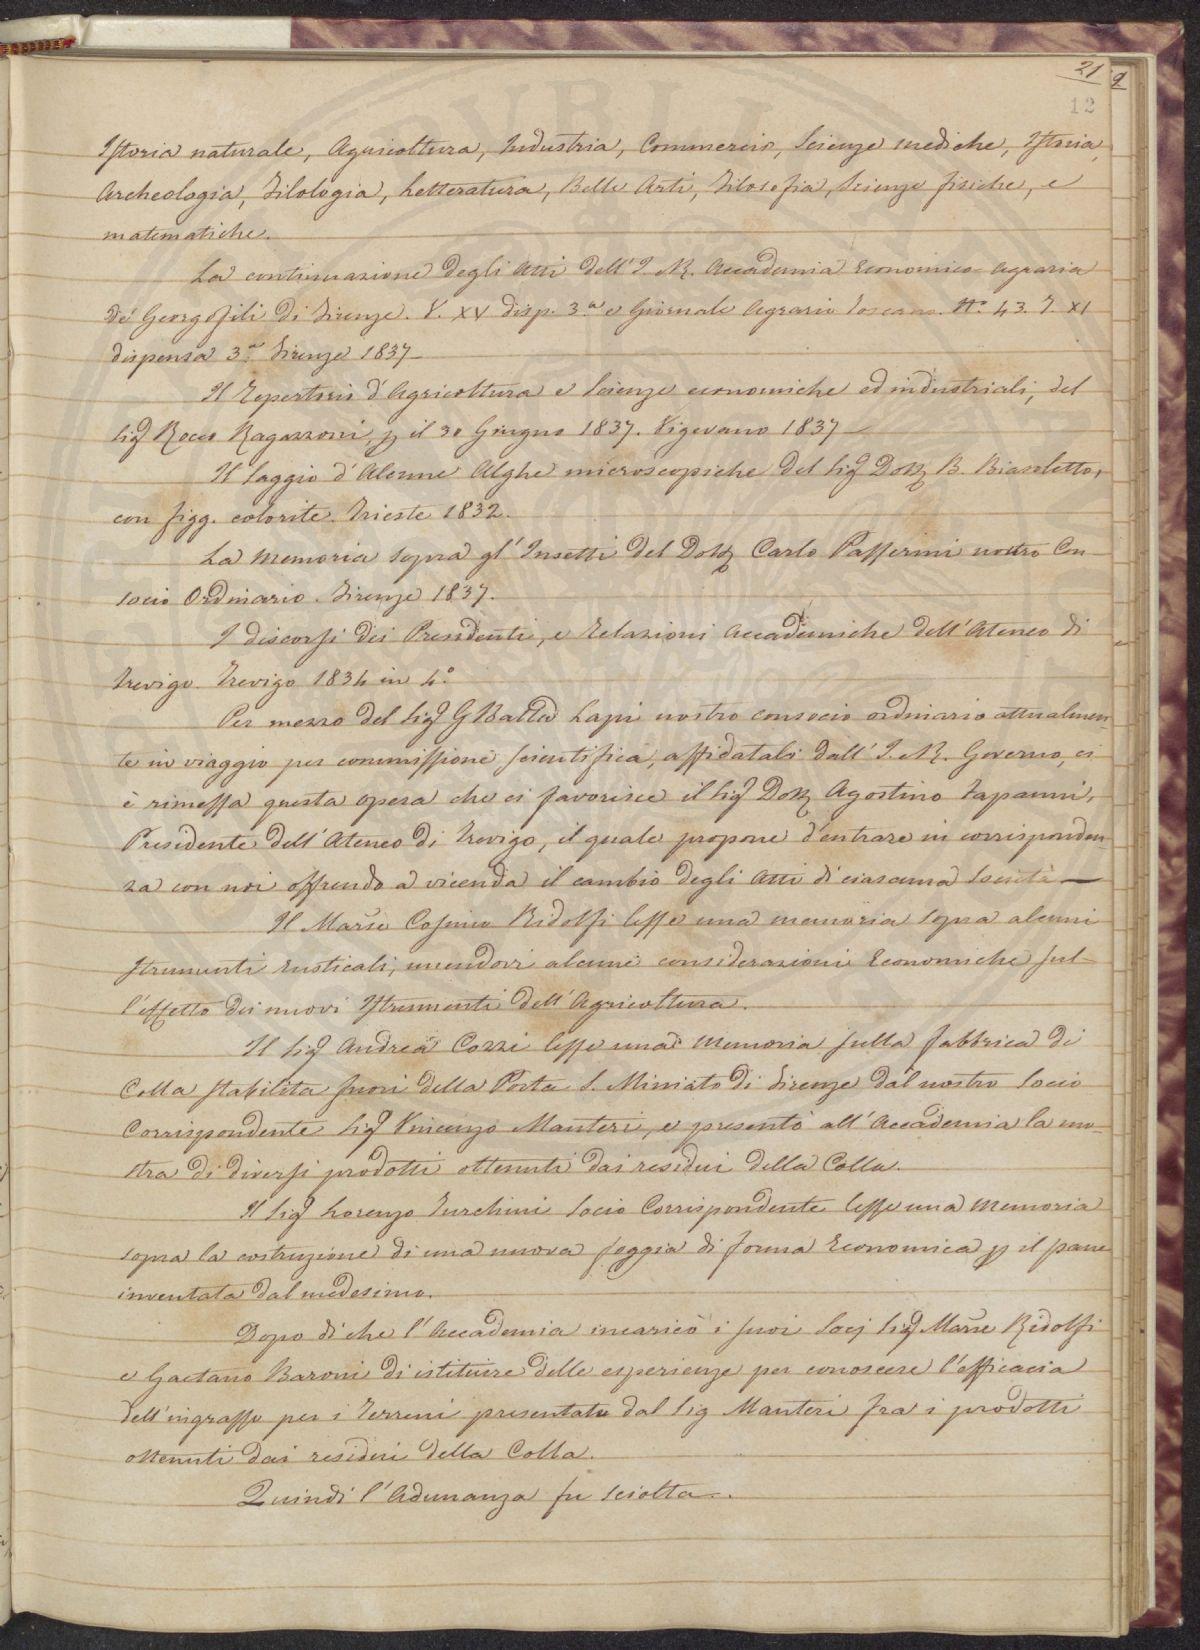 21
9
12
Istoria naturale, Agricoltura, Industria, Commercio, Scienze mediche, Istoria,
Archeologia, Filologia, Letteratura, Belle Arti, Filosofia, Scienze fisiche, e
matematiche.
La continuazione degli Atti dell' I. e R. Accademia Economico-Agraria
de' Georgofili di Firenze. V. XV disp. 3.a e Giornale Agrario Toscano. N.o 43. T. XI
dispensa 3.a Firenze 1837
Il Repertorio d'Agricoltura e Scienze economiche ed industriali, del
Sig Rocco Ragazzoni, p il 30 Giugno 1837. Vigevano 1837
Il Saggio d'Alcune Alghe microscopiche del Sig Dott B. Biasoletto,
con figg. colorite. Trieste 1832.
La Memoria sopra gl'Insetti del Dott Carlo Passerini nostro Con-
socio Ordinario. Firenze 1837.
I discorsi dei Presidenti, e Relazioni Accademiche dell'Ateneo di
Trevigo. Trevigo 1834 in 4.o
Per mezzo del Sig GBatta Lapi nostro consocio ordinario attualmen-
te in viaggio per commissione scientifica, affidatali dall' I. e R. Governo, ci
è rimessa questa opera che ci favorisce il Sig Dott Agostino Fapanni,
Presidente dell'Ateneo di Trevigo, il quale propone d'entrare in corrisponden-
za con noi offrendo a vicenda il cambio degli Atti di ciascuna Società
Il Marse Cosimo Ridolfi lesse una memoria sopra alcuni
strumenti rusticali, unendovi alcune considerazioni Economiche sul-
l'effetto dei nuovi Istrumenti dell'Agricoltura.
Il Sig Andrea Cozzi lesse una Memoria sulla fabbrica di
Colla stabilita fuori della Porta S. Miniato di Firenze dal nostro Socio
Corrispondente Sig Vincenzo Manteri, e presentò all'Accademia la mo-
stra di diversi prodotti ottenuti dai residui della Colla.
Il Sig Lorenzo Turchini Socio Corrispondente lesse una Memoria
sopra la costruzione di una nuova foggia di forma Economica p il pane
inventata dal medesimo.
Dopo di che l'Accademia incaricò i suoi Socj Sig Marse Ridolfi
e Gaetano Baroni di istituire delle esperienze per conoscere l'efficacia
dell'ingrasso per i Terreni presentato dal Sig Manteri fra i prodotti
ottenuti dai residui della Colla.
Quindi l'Adunanza fu sciolta.